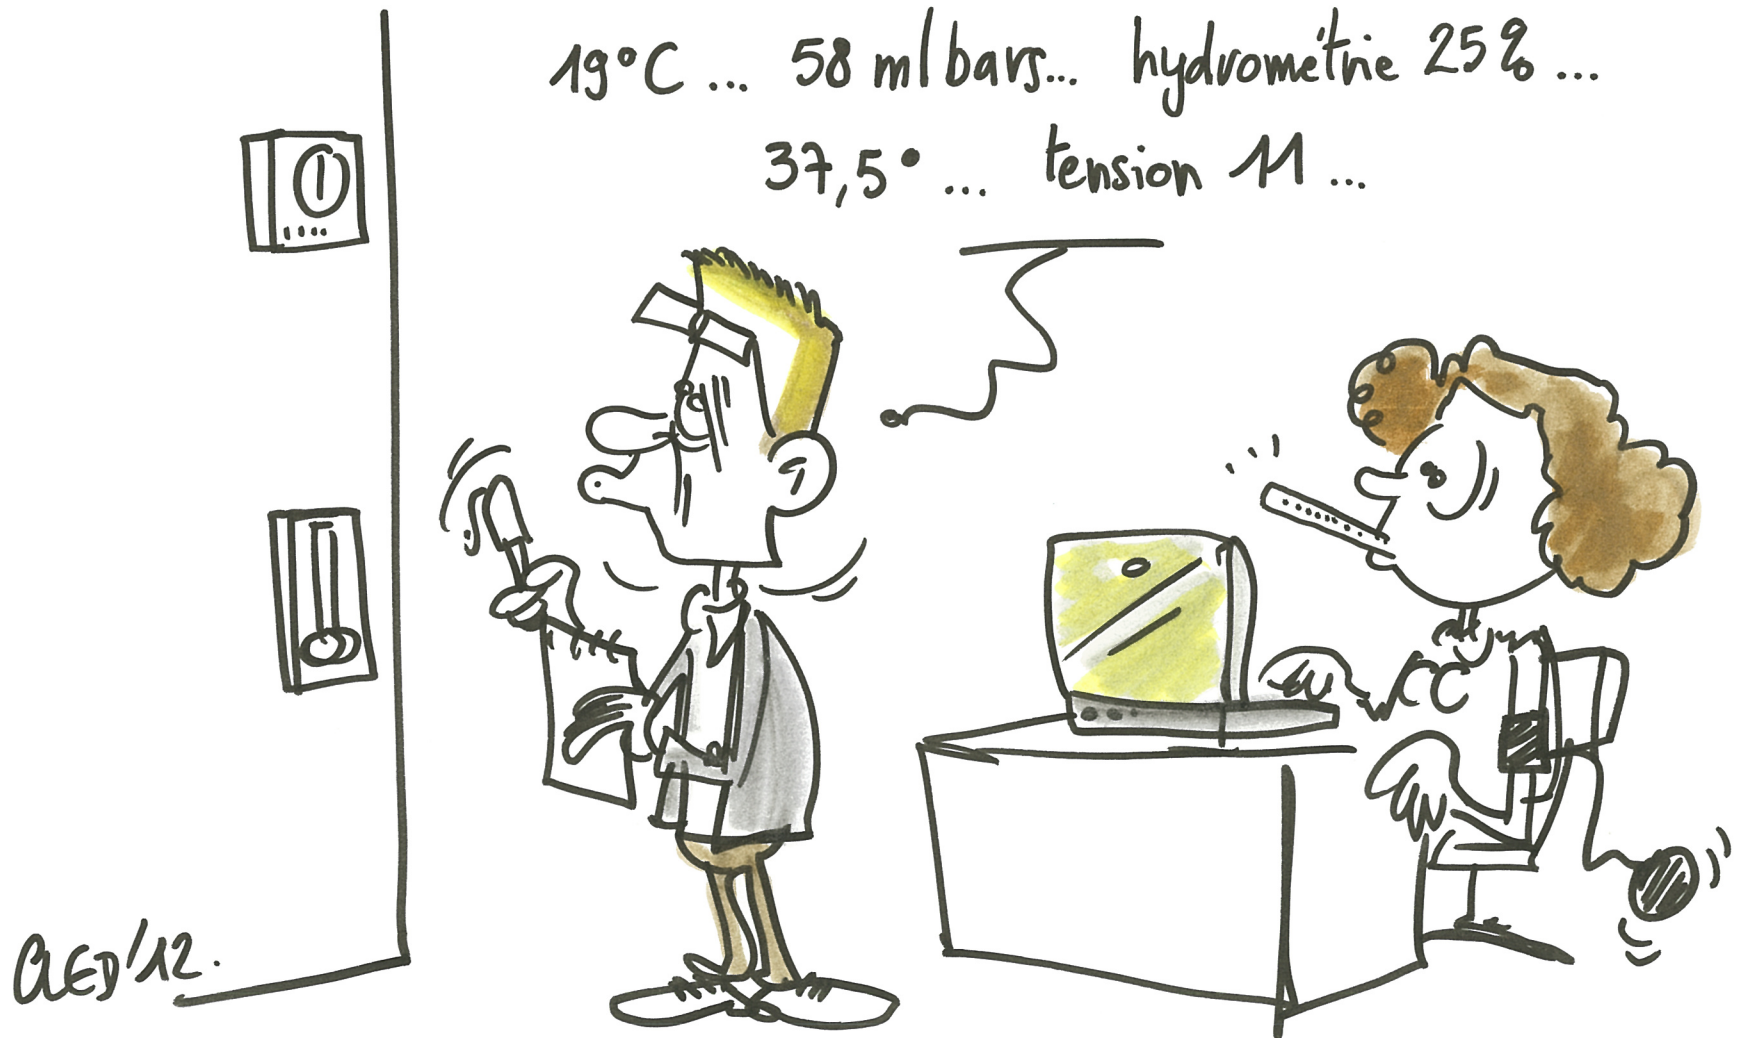 19°C ... 58 mlbars... hydrométrie 25% ...
37,5° ... tension 11 ...
CLED'12.